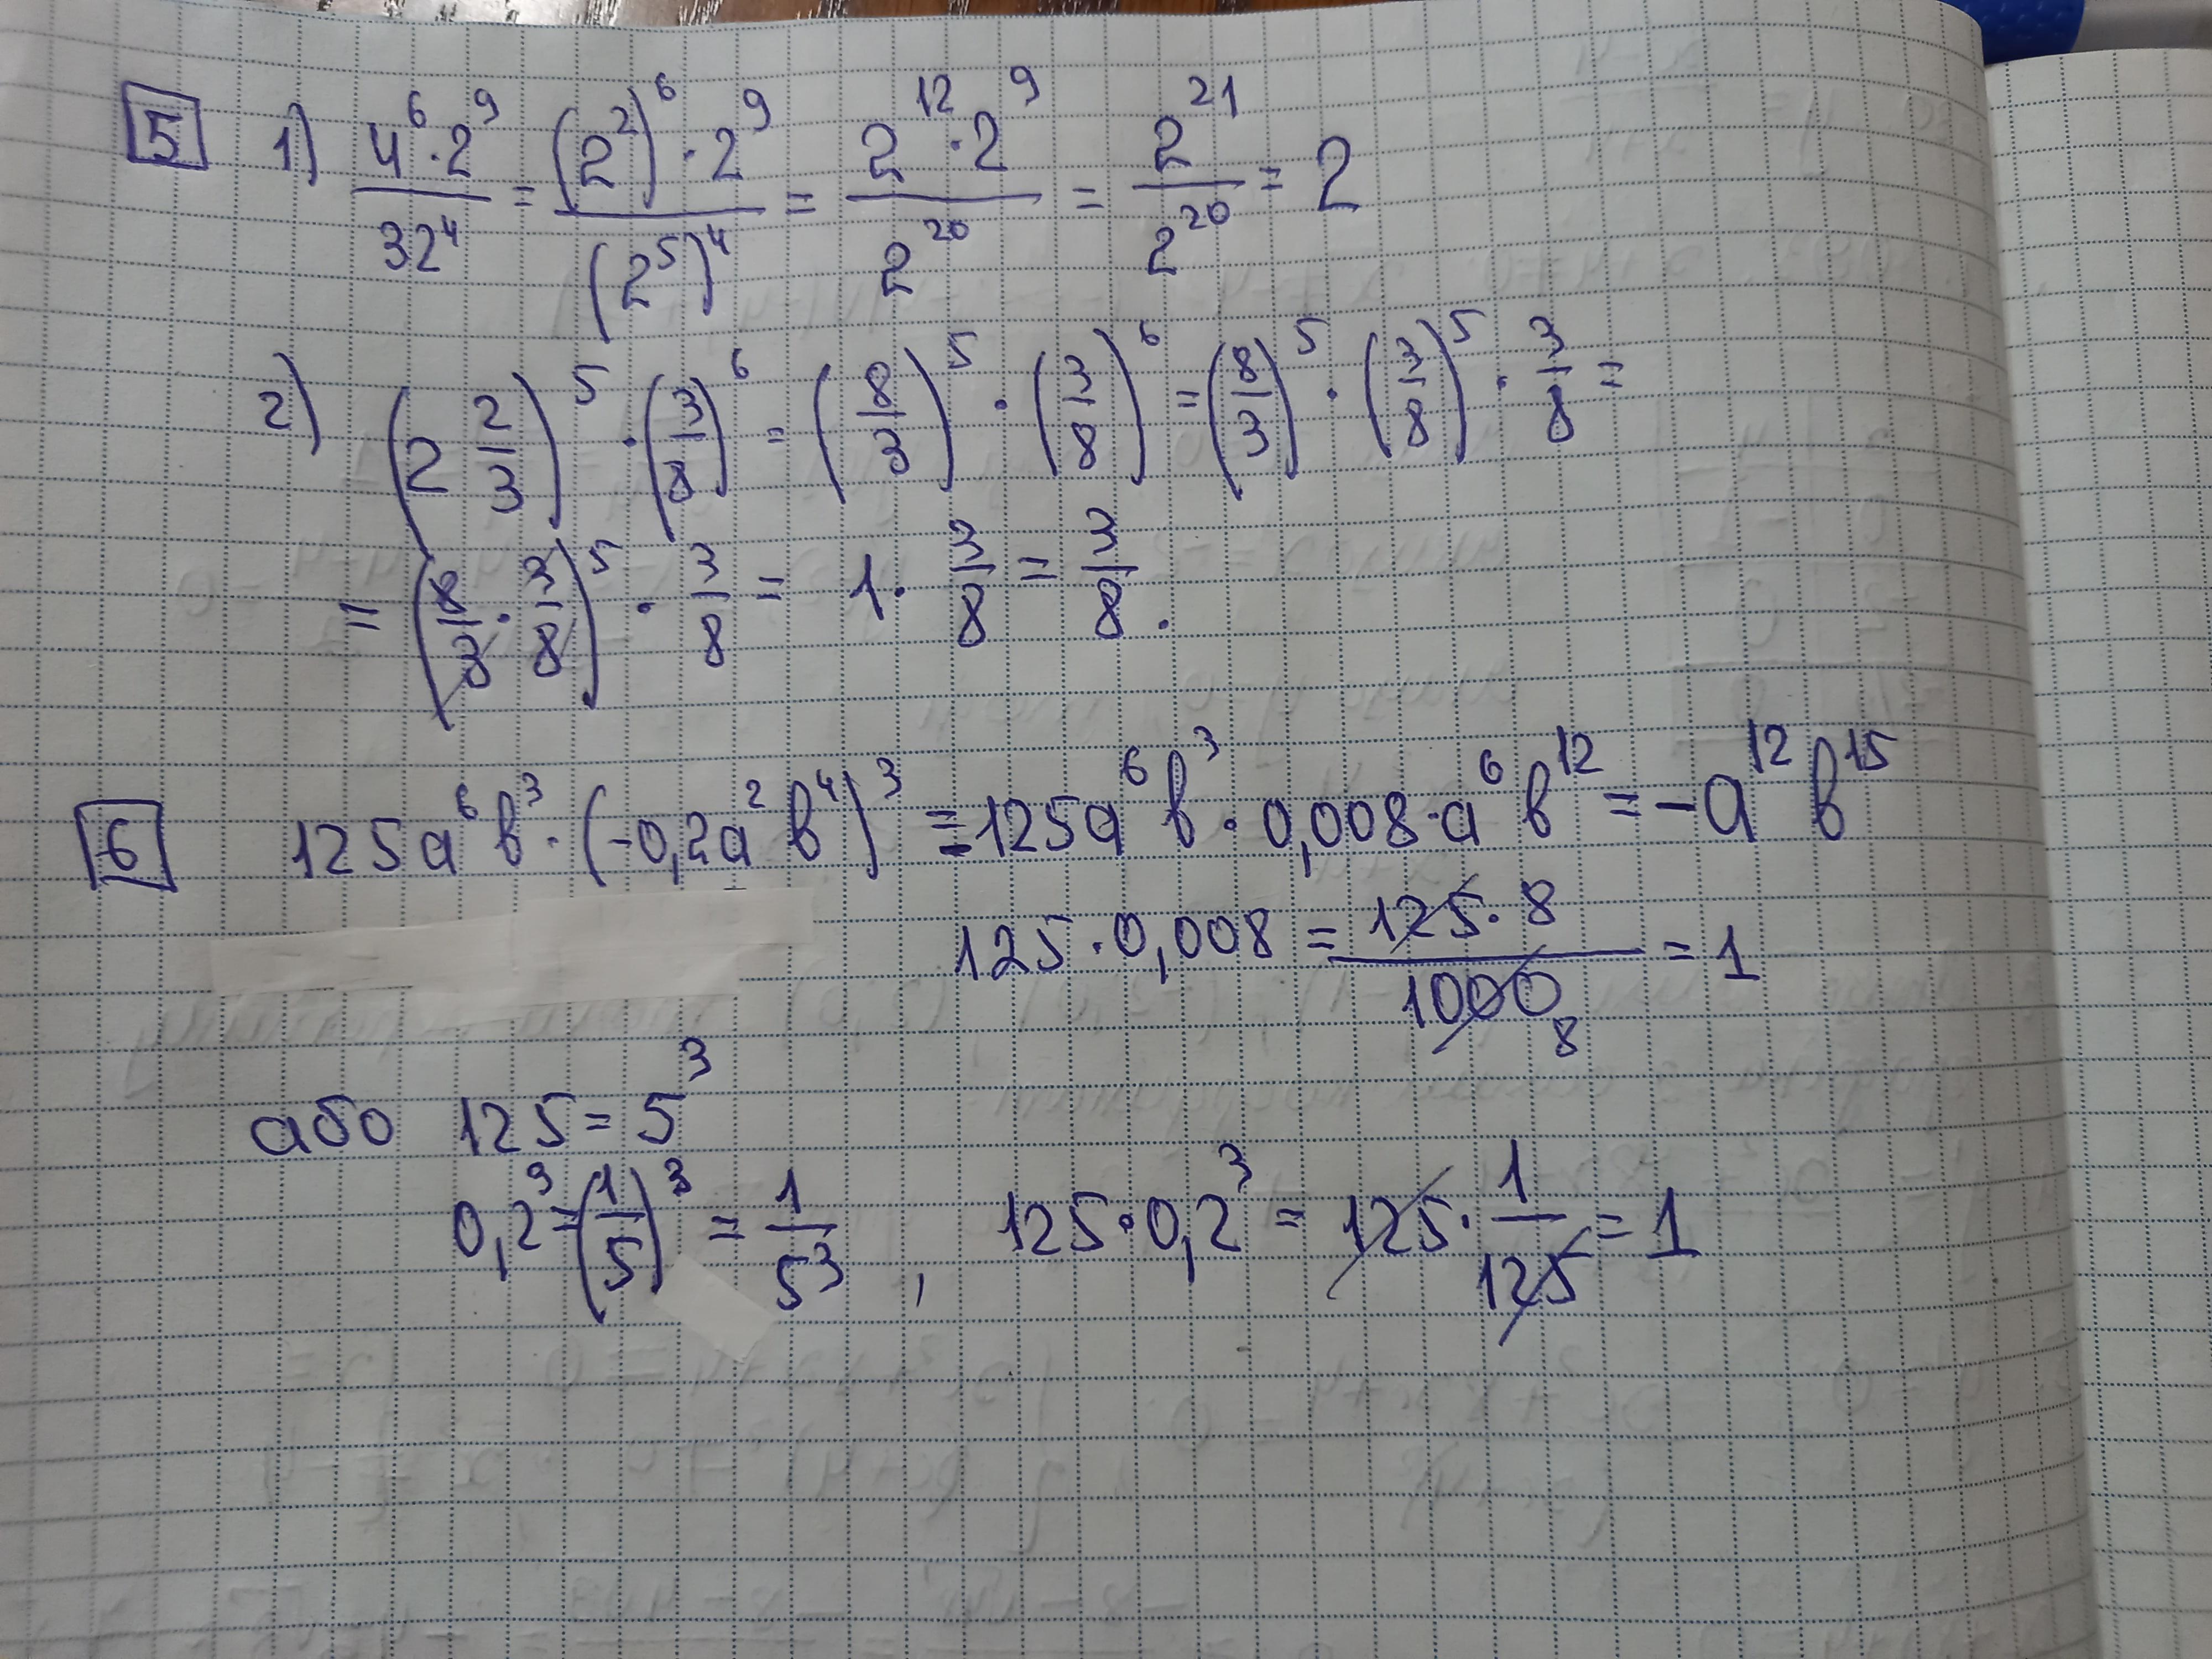 5 1) (4^6·2^9)/(32^4) = ((2^2)^6·2^9)/((2^5)^4) = (2^12·2^9)/(2^20) = 2^21/2^20 = 2
2) (2 2/3)^5·(3/8)^6 = (8/3)^5·(3/8)^6 = (8/3)^5·(3/8)^5·3/8 =
= (8/3·3/8)^5·3/8 = 1·3/8 = 3/8.
6 125a^6b^3·(-0,2a^2b^4)^3 = -125a^6b^3·0,008·a^6b^12 = -a^12b^15
125·0,008 = (125·8)/(1000 8) = 1
або 125=5^3
0,2^3=(1/5)^3 = 1/5^3, 125·0,2^3 = 125·1/125 = 1